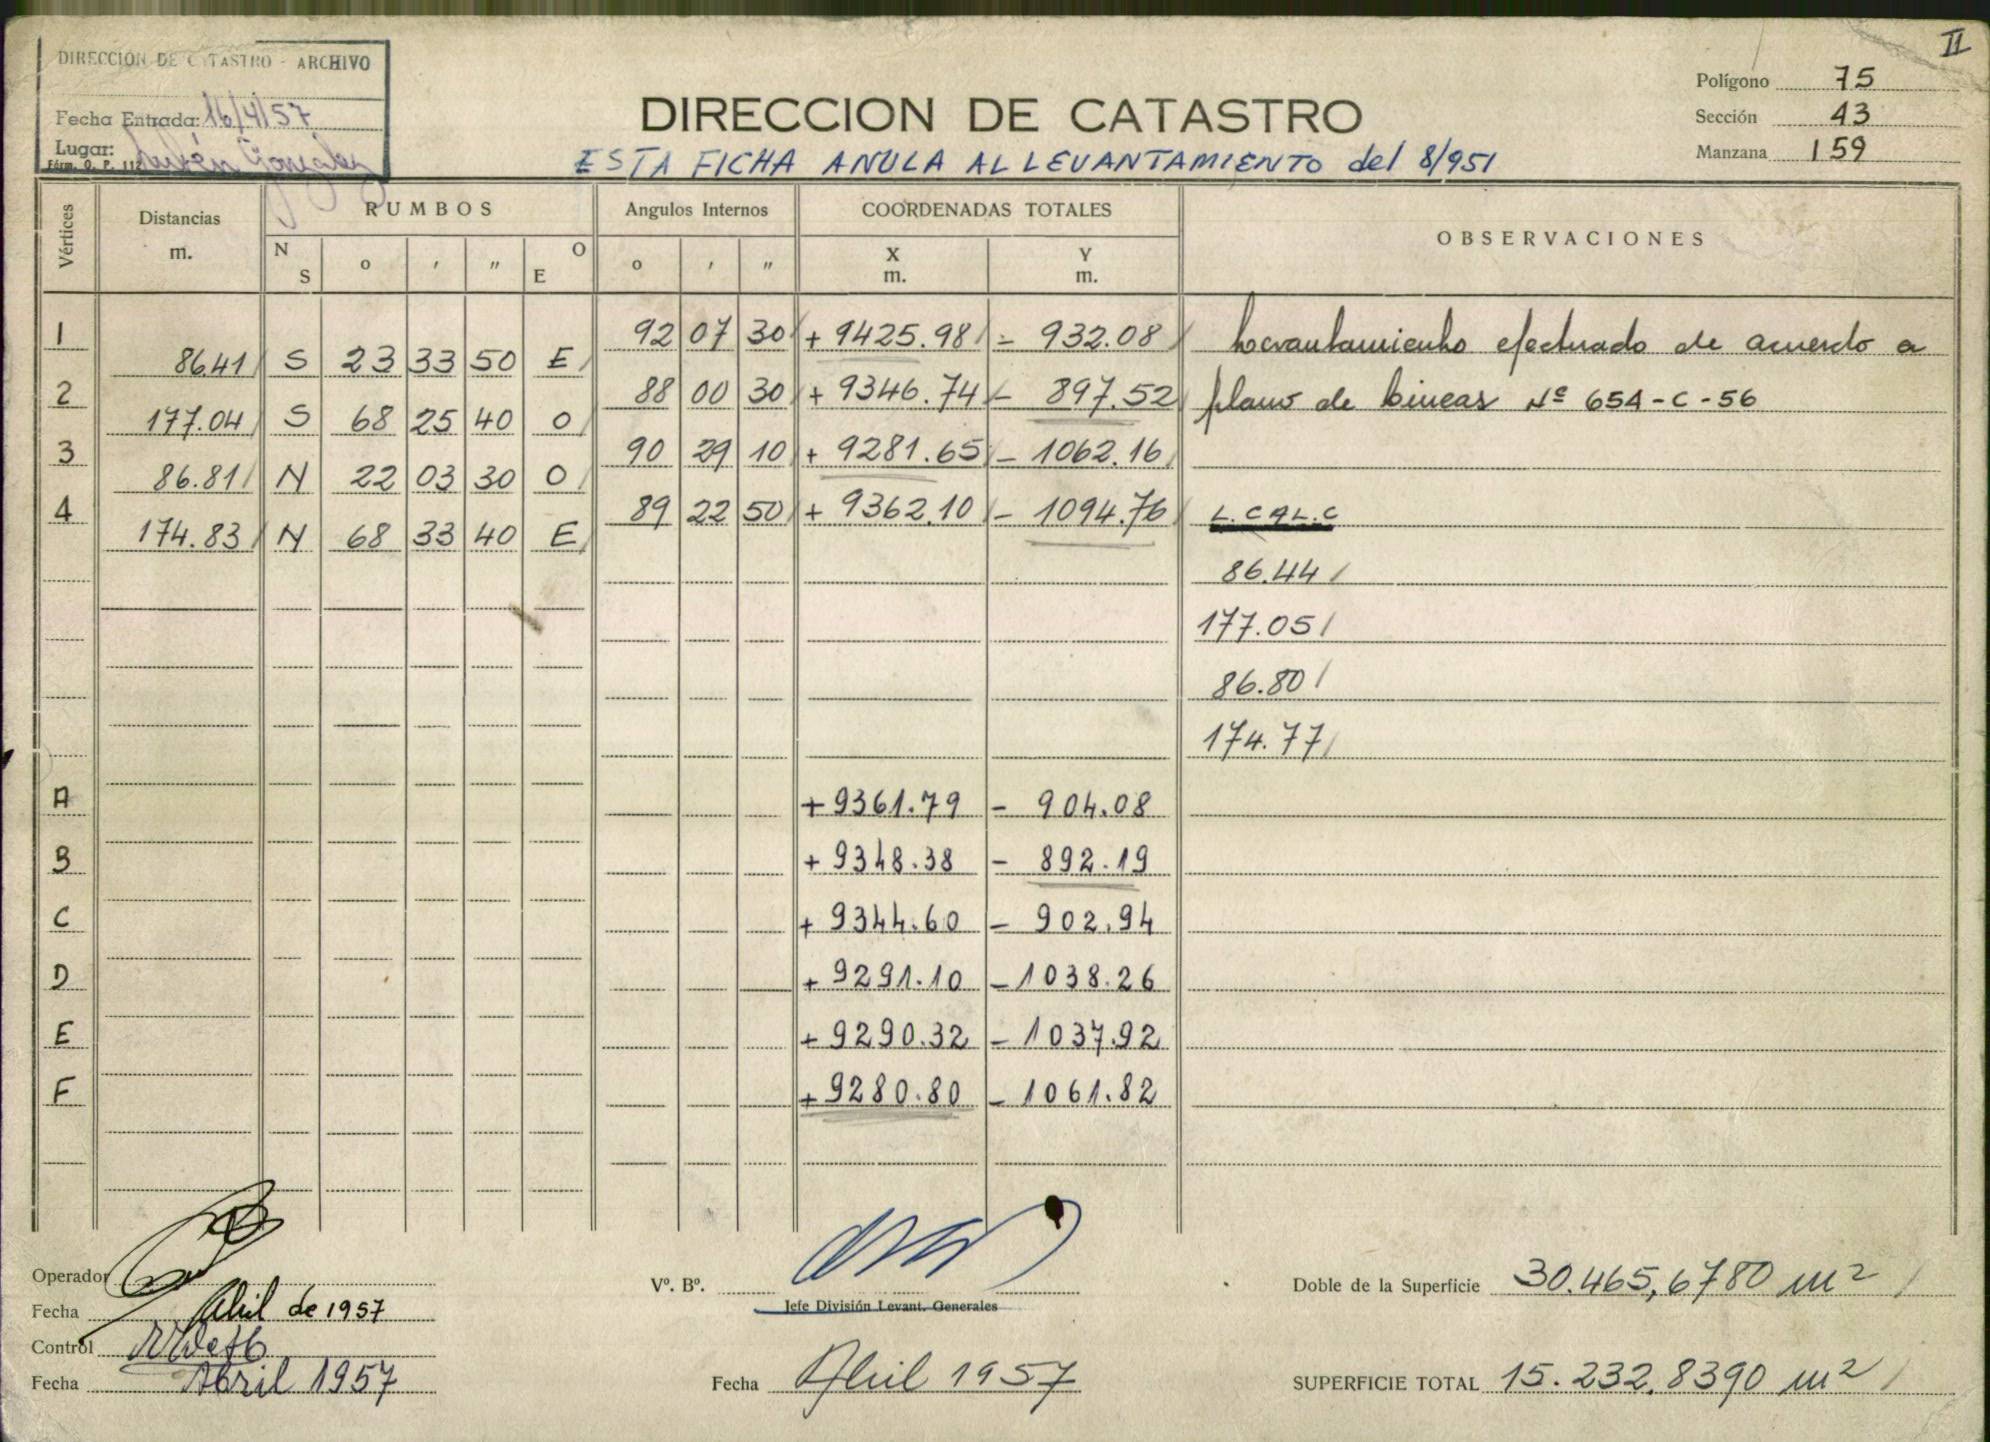 II
DIRECCION DE CATASTRO - ARCHIVO
Fecha Entrada: 16/4/57
Lugar: Rubén González
Fórm. O. P. 112
DIRECCION DE CATASTRO
ESTA FICHA ANULA AL LEVANTAMIENTO del 8/951
Polígono 75
Sección 43
Manzana 159
Vértices Distancias m. RUMBOS Angulos Internos COORDENADAS TOTALES OBSERVACIONES
N S o ' " O E o ' " X m. Y m.
1 92 07 30 + 9425.98 - 932.08 Levantamiento efectuado de acuerdo a
86.41 S 23 33 50 E
2 88 00 30 + 9346.74 - 897.52 plano de lineas Nº 654-C-56
177.04 S 68 25 40 O
3 90 29 10 + 9281.65 - 1062.16
86.81 N 22 03 30 O
4 89 22 50 + 9362.10 - 1094.76 L. CAL.C
174.83 N 68 33 40 E
86.44
177.05
86.80
174.77
A + 9361.79 - 904.08
B + 9348.38 - 892.19
C + 9344.60 - 902.94
D + 9291.10 - 1038.26
E + 9290.32 - 1037.92
F + 9280.80 - 1061.82
Operador
Fecha Abril de 1957
Control
Fecha Abril 1957
Vº. Bº.
Jefe División Levant. Generales
Fecha Abril 1957
Doble de la Superficie 30.465,6780 m²
SUPERFICIE TOTAL 15.232,8390 m²